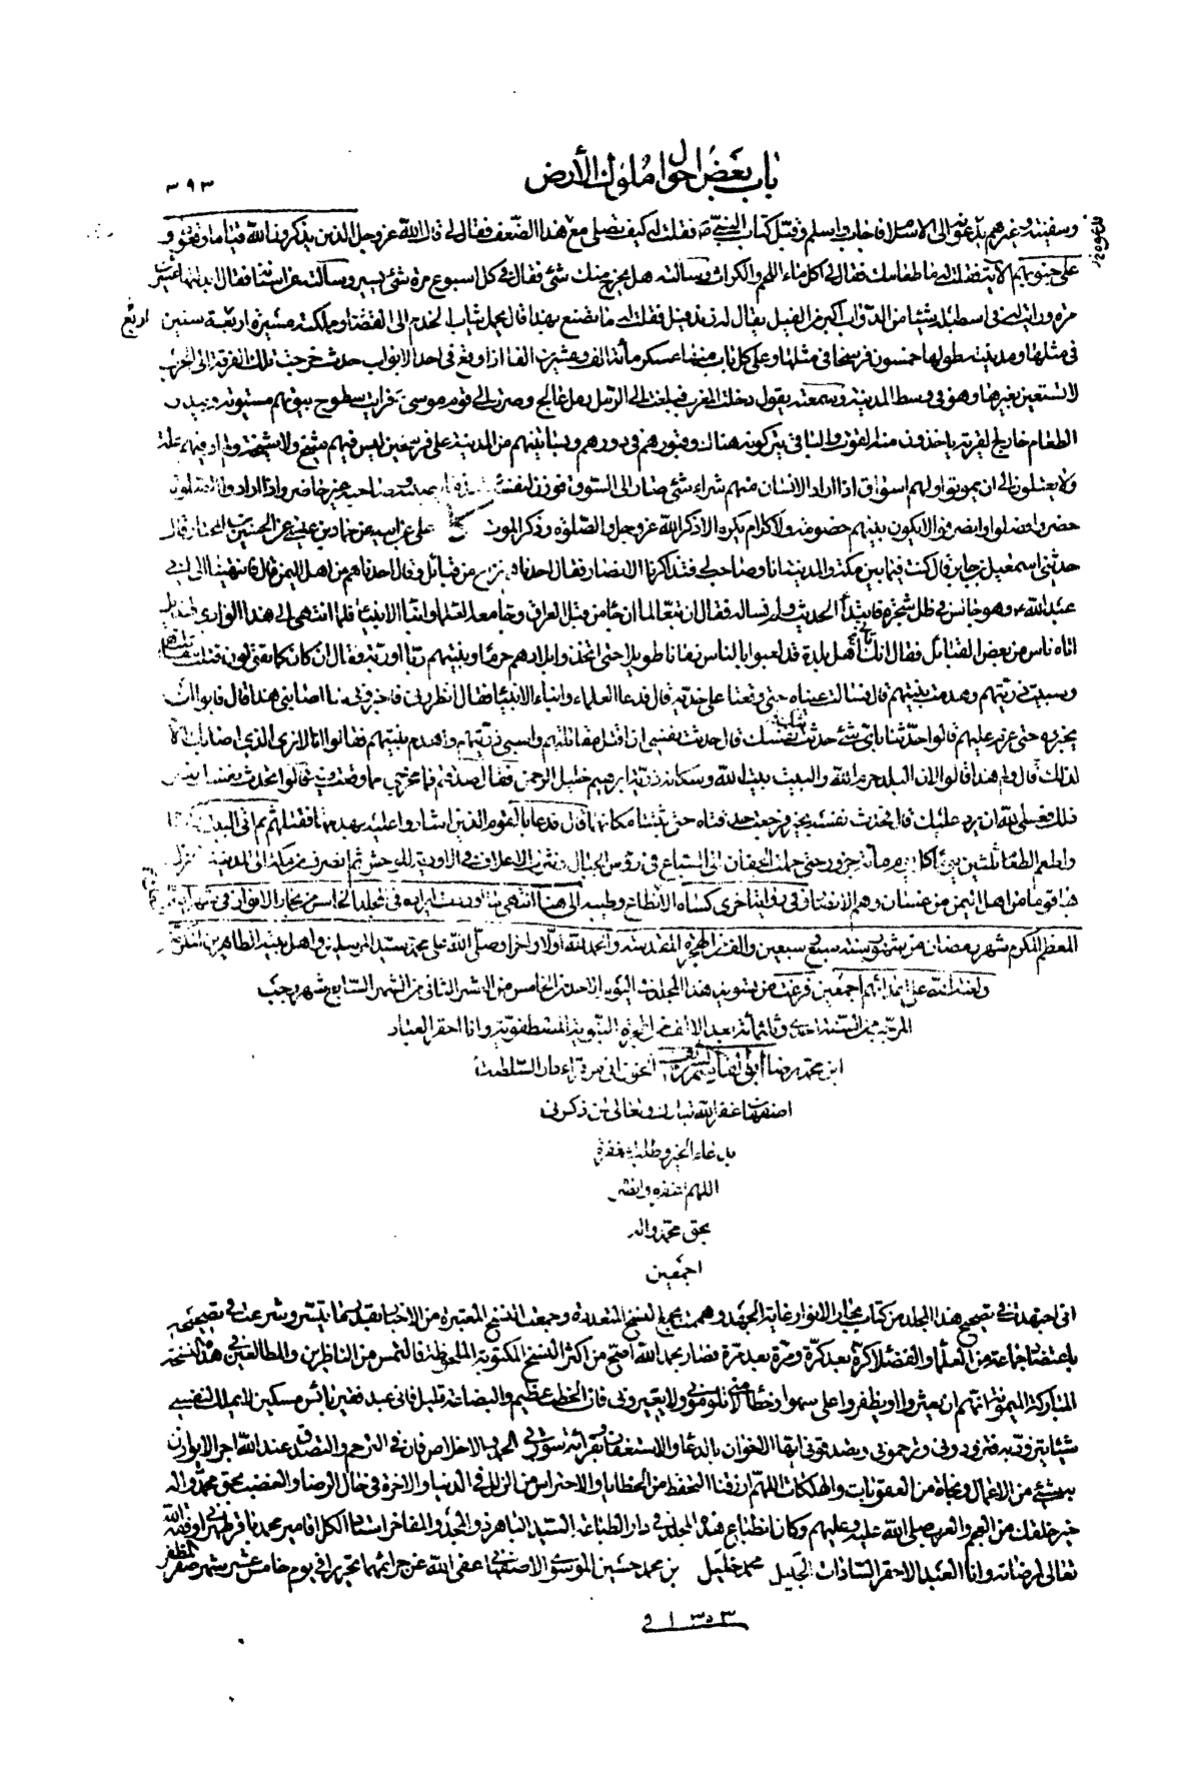 باب بعض احوال ملوك الأرض
٣٩٣
وسفينة وغيرهم يدعونه الى الاسلام فاجاب واسلم وقبل كتاب النبي ص فقلت له كيف تصلي مع هذا الضعف فقال لي قال الله عز وجل الذين يذكرون الله قياما وقعودا و
على جنوبهم الآية فقلت له ما طعامك فقال لي اكل ماء اللحم والكراث وسالته هل يخرج منك شئ فقال في كل اسبوع مرة شئ يسير وسالته عن اسنانه فقال ابدلتها عشرين
مرة ورايت له في اسطبله شيئا من الدواب اكبر من الفيل يقال له زنده فيل فقلت له ما تصنع بهذا قال يحمل ثياب الخدم الى القصار ومملكته مسيرة اربعة سنين
اربع
في مثلها ومدينته طولها خمسون فرسخا في مثلها وعلى كل باب منها عسكر مائة الف وعشرين الفا اذا وقع في احد الابواب حدث خرجت تلك الفرقة الى الحرب
لا تستعين بغيرها وهو في وسط المدينة وسمعته يقول دخلت المغرب فبلغت الى الرمل رمل عالج وصرت الى قوم موسى فرايت سطوح بيوتهم مستوية وبيدر
الطعام خارج القرية ياخذون منه القوت والباقي يتركونه هناك وقبورهم في دورهم وبساتينهم من المدينة على فرسخين ليس فيهم شيخ ولا شيخة ولم ار فيهم علة
ولا يعتلون الى ان يموتوا ولهم اسواق اذا اراد الانسان منهم شراء شئ صار الى السوق فوزن لنفسه وصاحبه غير حاضر واذا ارادوا الصلوة
حضروا فصلوا وانصرفوا لا يكون بينهم خصومة ولا كلام يكره الا ذكر الله عز وجل والصلوة وذكر الموت على عن ابيه عن حماد بن عيسى عن الحسين بن المختار قال
حدثني اسمعيل بن جابر قال كنت فيما بين مكة والمدينة انا وصاحب لي فتذاكرنا الانصار فقال احدنا هم نزاع من قبائل وقال احدنا هم من اهل اليمن قال فانتهينا الى ابي
عبد الله ع وهو جالس في ظل شجرة فابتدأ الحديث ولم نساله فقال ان تبعا لما ان جاء من قبل العراق وجاء معه العلماء وابناء الانبياء فلما انتهى الى هذا الوادي لهذيل
اتاه ناس من بعض القبائل فقالوا انك تاتي أهل بلدة قد لعبوا بالناس زمانا طويلا حتى اتخذوا بلادهم حرما وبنيتهم ربا او ربة فقال ان كان كما تقولون قتلت مقاتلتهم
وسبيت ذريتهم وهدمت بنيتهم قال فسالت عيناه حتى وقعتا على خديه قال فدعا العلماء وابناء الانبياء فقال انظروني فاخبروني لما اصابني هذا قال فابوا ان
يخبروه حتى عزم عليهم قالوا حدثنا باي شئ حدثت نفسك قال حدثت نفسي ان اقتل مقاتلتهم واسبي ذريتهم واهدم بنيتهم فقالوا انا لا نرى الذي اصابك الا
لذلك قال ولم هذا قالوا لان البلد حرم الله والبيت بيت الله وسكانه ذرية ابراهيم خليل الرحمن فقال صدقتم فما مخرجي مما وقعت فيه قالوا تحدث نفسك بغير
ذلك فعسى الله ان يرد عليك قال فحدث نفسه بخير فرجعت حدقتاه حتى ثبتتا مكانهما قال فدعا بالقوم الذين اشاروا عليه بهدمها فقتلهم ثم اتى البيت
واطعم الطعام ثلثين يوما كل يوم مائة جزور حتى حملت الجفان الى السباع في رؤس الجبال ونثرت الاعلاف في الاودية للوحش ثم انصرف من مكة الى المدينة فانزل
بها قوما من اهل اليمن من غسان وهم الانصار في رواية اخرى كساه الانطاع وطيبه الى هنا انتهى ما اوردت ايراده في المجلد الخامس من بحار الانوار في شهر الله
المعظم المكرم شهر رمضان من شهور سنة سبع سبعين والف من الهجرة المقدسة والحمد لله اولا واخرا وصلى الله على محمد سيد المرسلين واهل بيته الطاهرين
ولعنة الله على اعدائهم اجمعين فرغت من تسويد هذا المجلد في اليوم الخامس من العشر الثاني من الشهر السابع شهر رجب
المرجب من السنة وثلثمائة بعد الالف من الهجرة النبوية المصطفوية وانا احقر العباد
ابن محمد رضا أبو القاسم دار السلطنة
اصفهان غفر الله تبارك وتعالى لمن ذكرني
بدعاء الخير وطلب المغفرة
اللهم
بحق محمد واله
اجمعين
اني اجتهدت في تصحيح هذا المجلد من كتاب بحار الانوار غاية الجهد وهممت بجمع النسخ المتعددة وجمعت النسخ المعتبرة من الاخبار بقدر ما تيسر وشرعت في تصحيحه
باعتضاد جماعة من العلماء والفضلاء كرة بعد كرة ومرة بعد مرة فصار بحمد الله اصح من اكثر النسخ المكتوبة الملحوظة فالتمس من الناظرين والمطالعين في هذه النسخة
المباركة الميمونة انهم ان يعثروا او يظفروا على سهو او خطأ مني لا تلوموني ولا يعيروني فان الخطب عظيم والبضاعة قليل فاني عبد فقير بائس مسكين لا يملك لنفسه
شيئا يتزود به فتزودوني وترحموني وتصدقوني ايها الاخوان بالدعاء والاستغفار وقرائة سورتي الحمد والاخلاص فان في الترحم والتصدق عند الله اجر الا يوازن
بشئ من الاعمال ونجاة من العقوبات والهلكات اللهم ارزقنا التحفظ من الخطايا والاحتراس من الزلل في الدنيا والاخرة في حال الرضا والغضب بحق محمد واله
خير خلقك من العجم والعرب صلى الله عليه وعليهم وكان انطباع هذا المجلد في دار الطباعة السيد الباهر ذو المجد والمفاخر استاد الكل اقا مير محمد باقر طهراني اوفقه الله
تعالى لمرضاته وانا العبد الاحقر السادات الجليل محمد خليل بن محمد حسين الموسوي الاصفهاني عفى الله عن جرائمهما تحريرا في يوم خامس عشر شهر صفر المظفر